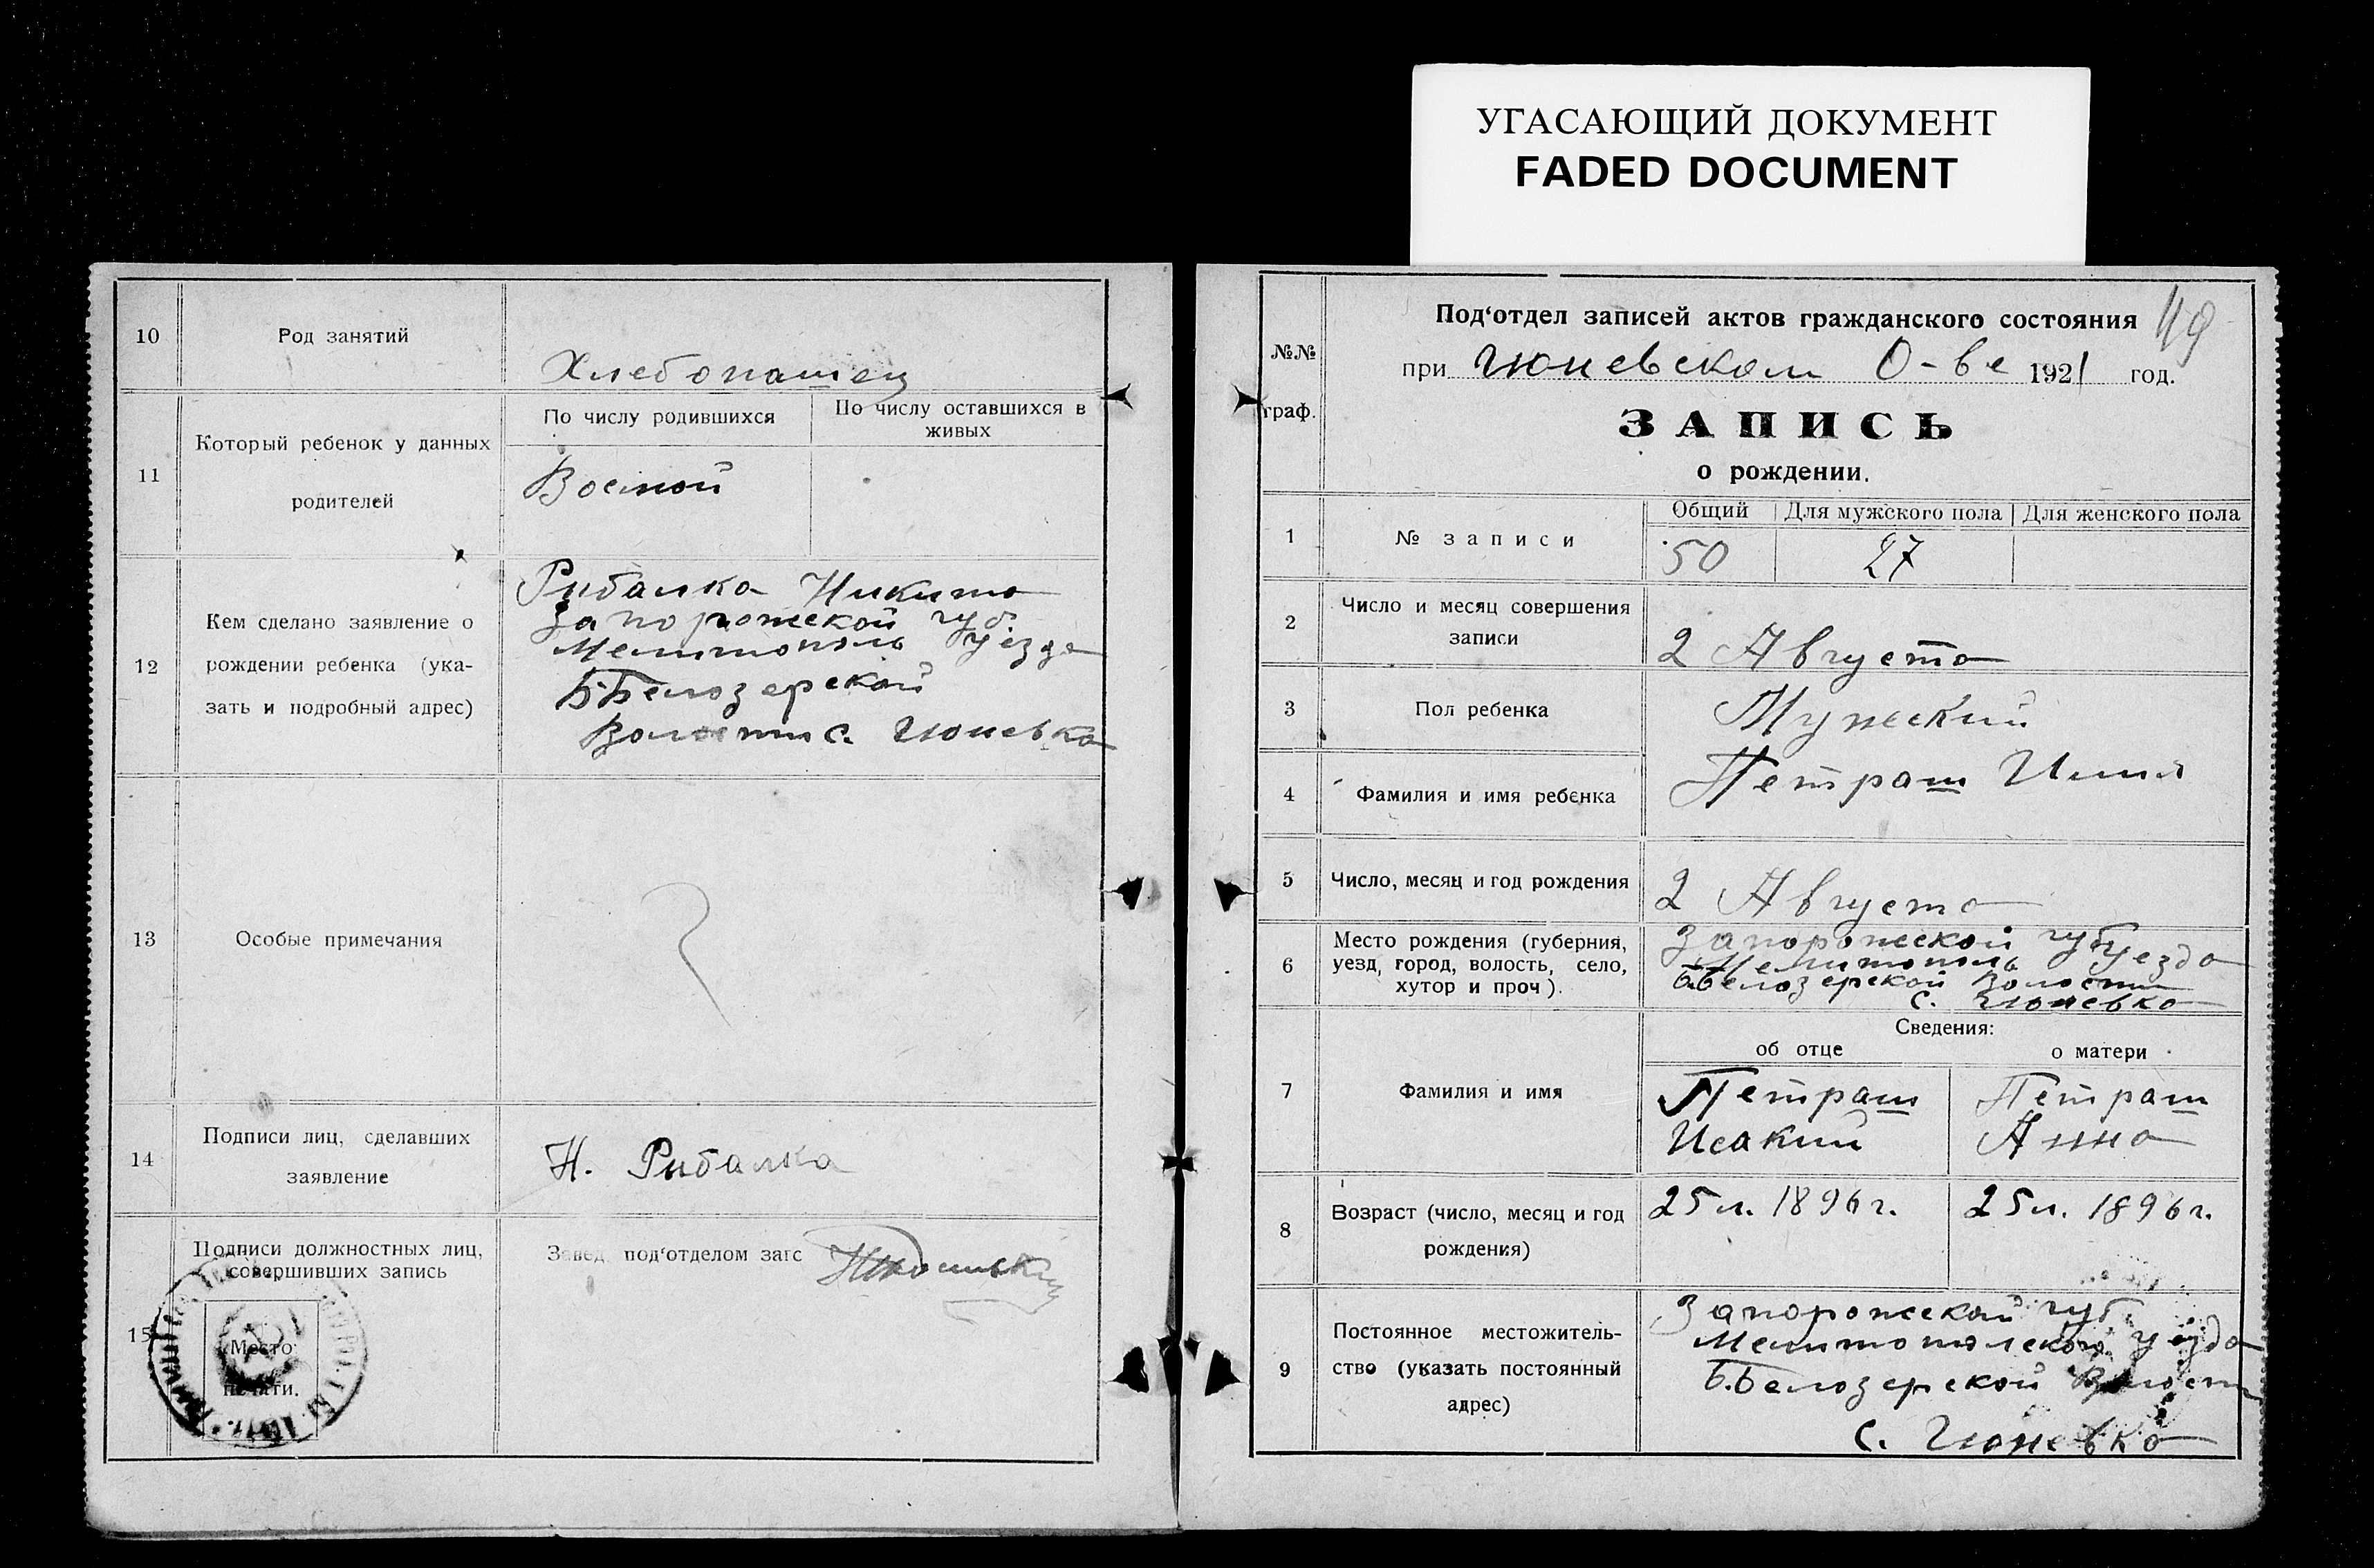 УГАСАЮЩИЙ ДОКУМЕНТ
FADED DOCUMENT
10
Род занятий
Хлебопашец
11
Который ребенок у данных
родителей
По числу родившихся
По числу оставшихся в
живых
Восмой
12
Кем сделано заявление о
рождении ребенка (ука-
зать и подробный адрес)
Рибалка Никита
Запорожской губ.
Мелитополь Уезда
Б-Белозерской
Волости с. Гюневка
13
Особые примечания
14
Подписи лиц, сделавших
заявление
Н. Рибалка
15
Подписи должностных лиц,
совершивших запись
Завед. под‘отделом загс
Место
печати.
119
№№
граф.
Под‘отдел записей актов гражданского состояния
при Гюневском О-ве 1921 год.
ЗАПИСЬ
о рождении.
1
№ записи
Общий
Для мужского пола
Для женского пола
50
27
2
Число и месяц совершения
записи
2 Августа
3
Пол ребенка
Мужский
4
Фамилия и имя ребенка
Петраш Илия
5
Число, месяц и год рождения
2 Августа
6
Место рождения (губерния,
уезд, город, волость, село,
хутор и проч).
Запорожской губ
Мелитополь Уезда
Б.Белозерской Волости
с. Гюневка
Сведения:
об отце
о матери
7
Фамилия и имя
Петраш
Исакий
Петраш
Анна
8
Возраст (число, месяц и год
рождения)
25 л. 1896 г.
25 л. 1896 г.
9
Постоянное местожитель-
ство (указать постоянный
адрес)
Запорожской губ.
Мелитополской Уезда
Б.Белозерской Волости
с. Гюневка